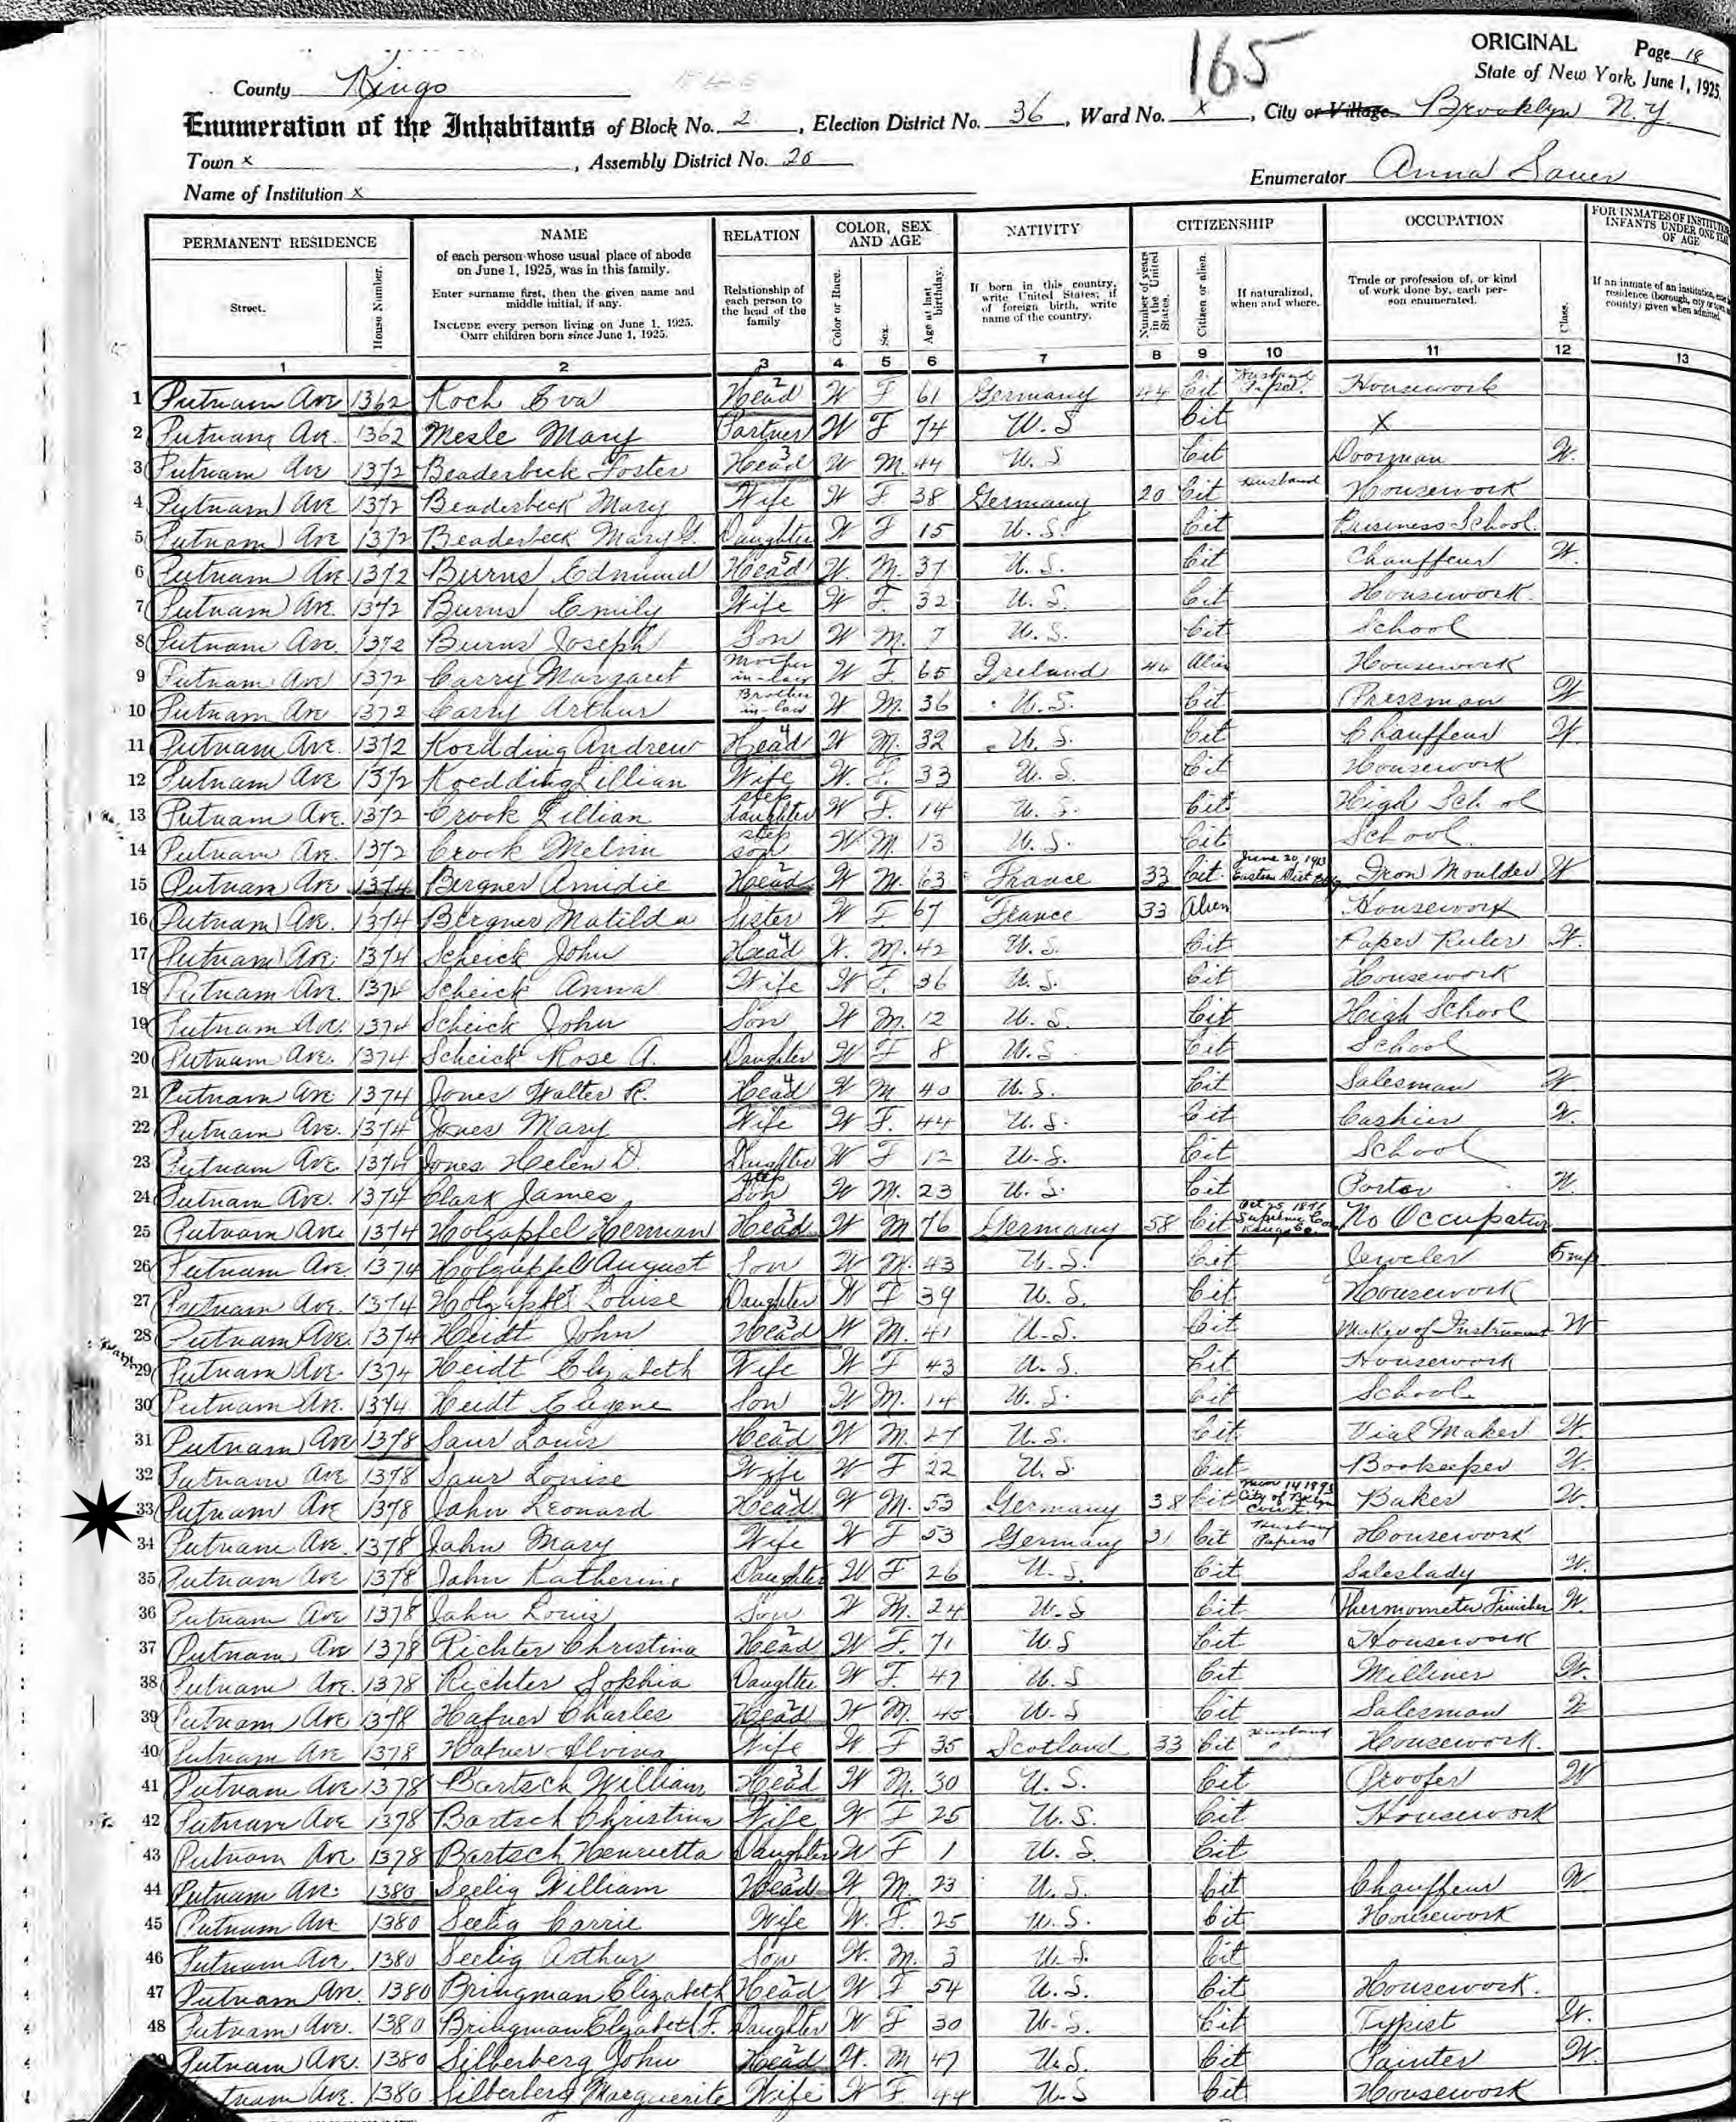 165
ORIGINAL Page 18
State of New York, June 1, 1925
County Kings
Enumeration of the Inhabitants of Block No. 2, Election District No. 36, Ward No. x, City or Village Brooklyn N.Y.
Town x, Assembly District No. 20
Name of Institution x
Enumerator Anna Sauer
PERMANENT RESIDENCE NAME RELATION COLOR, SEX AND AGE NATIVITY CITIZENSHIP OCCUPATION FOR INMATES OF INSTITUTIONS INFANTS UNDER ONE YEAR OF AGE
Street. House Number.
of each person whose usual place of abode on June 1, 1925, was in this family.
Enter surname first, then the given name and middle initial, if any.
INCLUDE every person living on June 1, 1925. OMIT children born since June 1, 1925.
Relationship of each person to the head of the family
Color or Race. Sex. Age at last birthday.
If born in this country, write United States; if of foreign birth, write name of the country.
Number of years in the United States. Citizen or alien. If naturalized, when and where.
Trade or profession of, or kind of work done by, each person enumerated. Class.
1 2 3 4 5 6 7 8 9 10 11 12 13
1 Putnam Ave 1362 Koch Eva Head 2 W F 61 Germany 44 Cit Husband Housework
2 Putnam Av. 1362 Mesle Mary Partner W F 74 U.S Cit X
3 Putnam Ave 1372 Beaderbeck Foster Head 3 W M. 44 U.S Cit Doorman W.
4 Putnam Ave 1372 Beaderbeck Mary Wife W F 38 Germany 20 Cit Husband Housework
5 Putnam Ave 1372 Beaderbeck Mary G. Daughter W F 15 U.S. Cit Business School.
6 Putnam Ave 1372 Burns Edmund Head 5 W. M. 37 U.S. Cit Chauffeur W.
7 Putnam Ave. 1372 Burns Emily Wife W F. 32 U.S. Cit Housework.
8 Putnam Ave. 1372 Burns Joseph Son W M. 7 U.S. Cit School
9 Putnam Ave 1372 Carry Margaret Mother in-law W F 65 Ireland 44 Alien Housework
10 Putnam Ave 1372 Carry Arthur Brother in-law W M. 36 U.S. Cit Pressman W
11 Putnam Ave. 1372 Koedding Andrew Head 4 W M. 32 U.S. Cit Chauffeur W.
12 Putnam Ave 1372 Koedding Lillian Wife W. F. 33 U.S. Cit Housework
13 Putnam Ave. 1372 Crook Lillian step daughter W F. 14 U.S. Cit. High School
14 Putnam Ave. 1372 Crook Melvin step son W M 13 U.S. Cit School.
15 Putnam Ave 1374 Bergner Amidie Head 2 W M. 63 France 33 Cit. June 20, 1913 Eastern Dist Iron Moulder W
16 Putnam Ave. 1374 Bergner Matilda Sister W F 67 France 33 Alien Housework
17 Putnam Ave. 1374 Scheick John Head 4 W. M. 42 U.S. Cit Paper Ruler W.
18 Putnam Ave. 1374 Scheick Anna Wife W F. 36 U.S. Cit Housework
19 Putnam Ave. 1374 Scheick John Son W M. 12 U.S. Cit High School
20 Putnam Ave. 1374 Scheick Rose A. Daughter W F 8 U.S Cit School
21 Putnam Ave. 1374 Jones Walter R. Head 4 W M 40 U.S. Cit Salesman W
22 Putnam Ave. 1374 Jones Mary Wife W F. 44 U.S. Cit Cashier W.
23 Putnam Ave. 1374 Jones Helen D. Daughter W F 12 U.S. Cit School
24 Putnam Ave. 1374 Clark James step Son W M. 23 U.S. Cit Porter W.
25 Putnam Ave 1374 Holzapfel Herman Head 3 W M 76 Germany 58 Cit Oct 25 1876 Supreme Kings Co. No Occupation
26 Putnam Ave. 1374 Holzapfel August Son W M. 43 U.S. Cit Jeweler Emp
27 Putnam Ave. 1374 Holzapfel Louise Daughter W F 39 U.S. Cit Housework
28 Putnam Ave. 1374 Heidt John Head 3 W M. 41 U.S. Cit Maker of Instrument W
29 Putnam Ave. 1374 Heidt Elizabeth Wife W F 43 U.S. Cit Housework
30 Putnam Ave. 1374 Heidt Eugene Son W M. 14 U.S. Cit School
31 Putnam Ave 1378 Saur Louis Head 2 W M. 27 U.S. Cit. Vial Maker W.
32 Putnam Ave 1378 Saur Louise Wife W F 22 U.S Cit Bookeeper W.
33 Putnam Ave 1378 John Leonard Head 4 W M. 53 Germany 38 Cit 14 1893 City of Court Baker W.
34 Putnam Ave. 1378 John Mary Wife W F 53 Germany 31 Cit Husband Papers Housework
35 Putnam Ave 1378 John Katherine Daughter W F 26 U.S. Cit Saleslady W.
36 Putnam Ave 1378 John Louis Son W M. 24 U.S Cit Thermometer Finisher W.
37 Putnam Ave 1378 Richter Christina Head 2 W F. 71 U.S Cit Housework
38 Putnam Ave. 1378 Richter Sophia Daughter W F. 47 U.S Cit Milliner W.
39 Putnam Ave 1378 Hafner Charles Head 2 W M. 45 U.S Cit Salesman W
40 Putnam Ave 1378 Hafner Alvina Wife W F 35 Scotland 33 Cit Husband Housework.
41 Putnam Ave 1378 Bartsch William Head 3 W M. 30 U.S. Cit Proofer W
42 Putnam Ave 1378 Bartsch Christina Wife W F 25 U.S. Cit Housework
43 Putnam Ave 1378 Bartsch Henrietta Daughter W F 1 U.S. Cit
44 Putnam Ave. 1380 Seelig William Head 3 W M. 23 U.S. Cit Chauffeur W
45 Putnam Ave 1380 Seelig Carrie Wife W. F. 25 U.S. Cit Housework
46 Putnam Ave. 1380 Seelig Arthur Son W. M. 3 U.S. Cit
47 Putnam Ave. 1380 Bringman Elizabeth Head 2 W F 54 U.S. Cit Housework.
48 Putnam Ave. 1380 Bringman Elizabeth F. Daughter W F 30 U.S. Cit Typist W.
Putnam Ave. 1380 Silberberg John Head 2 W. M 47 U.S. Cit Painter W.
Ave. 1380 Silberberg Marguerite Wife W F. 44 U.S Cit Housework